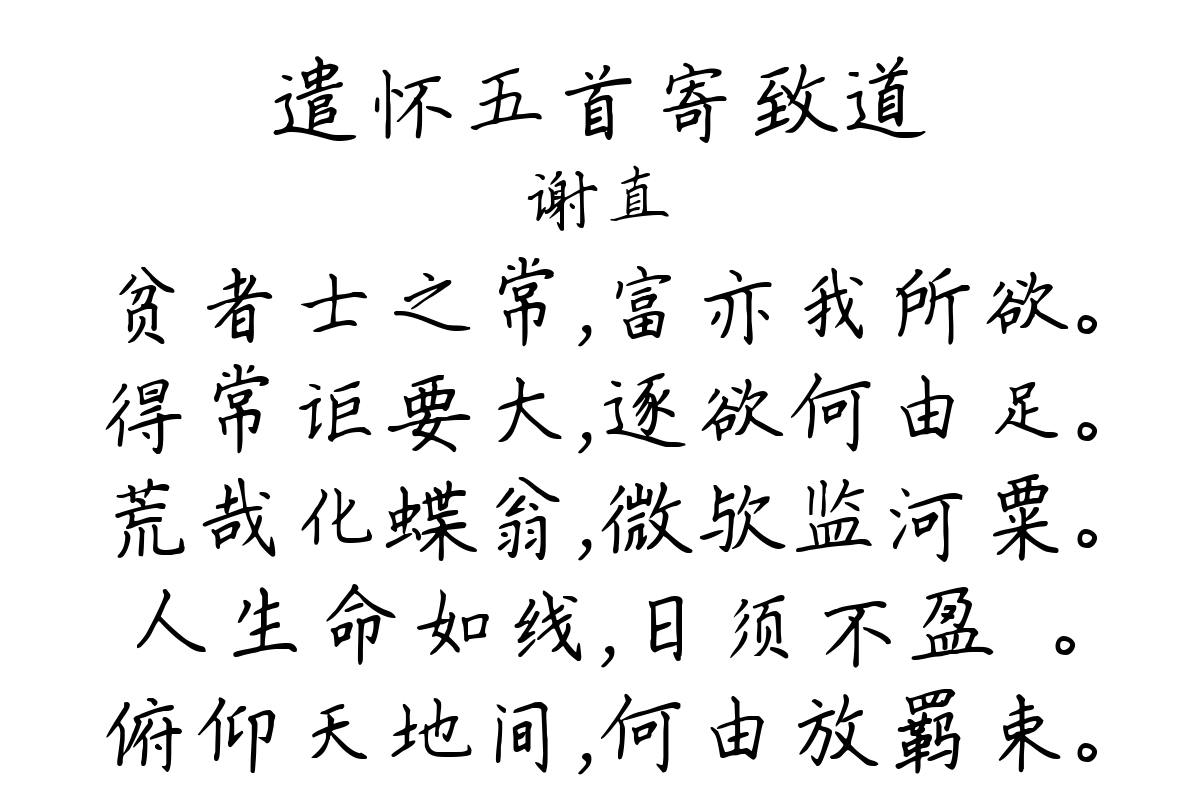 遣怀五首寄致道
谢直
贫者士之常,富亦我所欲。
得常讵要大,逐欲何由足。
荒哉化蝶翁,微欤监河粟。
人生命如线,日须不盈 。
俯仰天地间,何由放羁束。